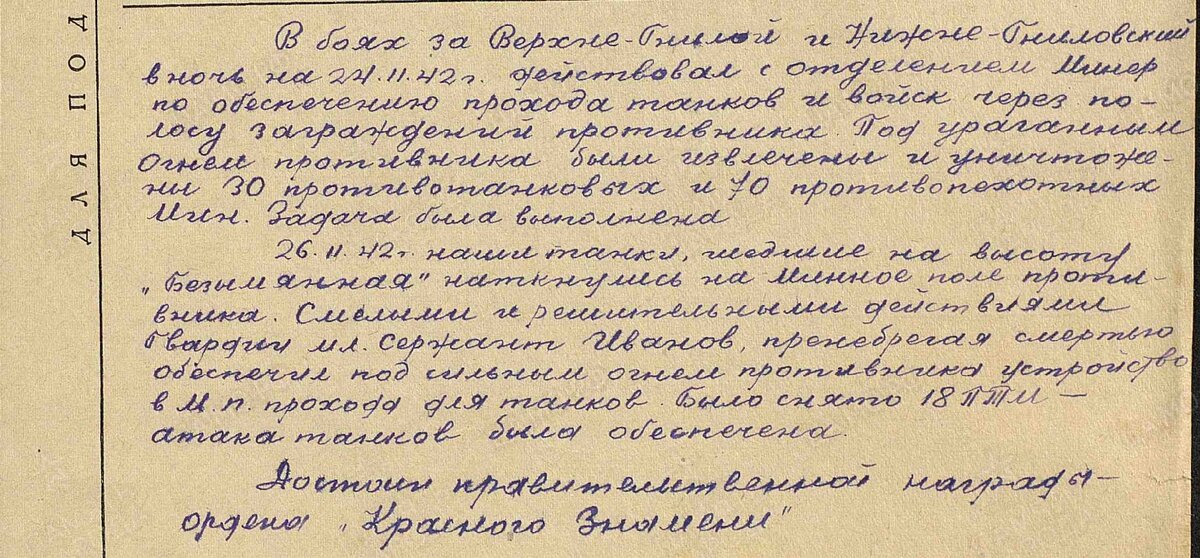 ДЛЯ ПОД
В боях за Верхне-Гнилой и Нижне-Гниловский
в ночь на 24.11.42г. действовал с отделением минер
по обеспечению прохода танков и войск через по-
лосу заграждений противника. Под ураганным
огнем противника были извлечены и уничтоже-
ни 30 противотанковых и 70 противопехотных
мин. Задача была выполнена
26.11.42г. наши танки, шедшие на высоту
„Безымянная" наткнулись на минное поле проти-
вника. Смелыми и решительными действиями
Гвардии мл. сержант Иванов, пренебрегая смертью
обеспечил под сильным огнем противника устройство
в м.п. прохода для танков. Было снято 18 ПТМ —
атака танков была обеспечена.
Достоин правительственной награды —
ордена „Красного Знамени"